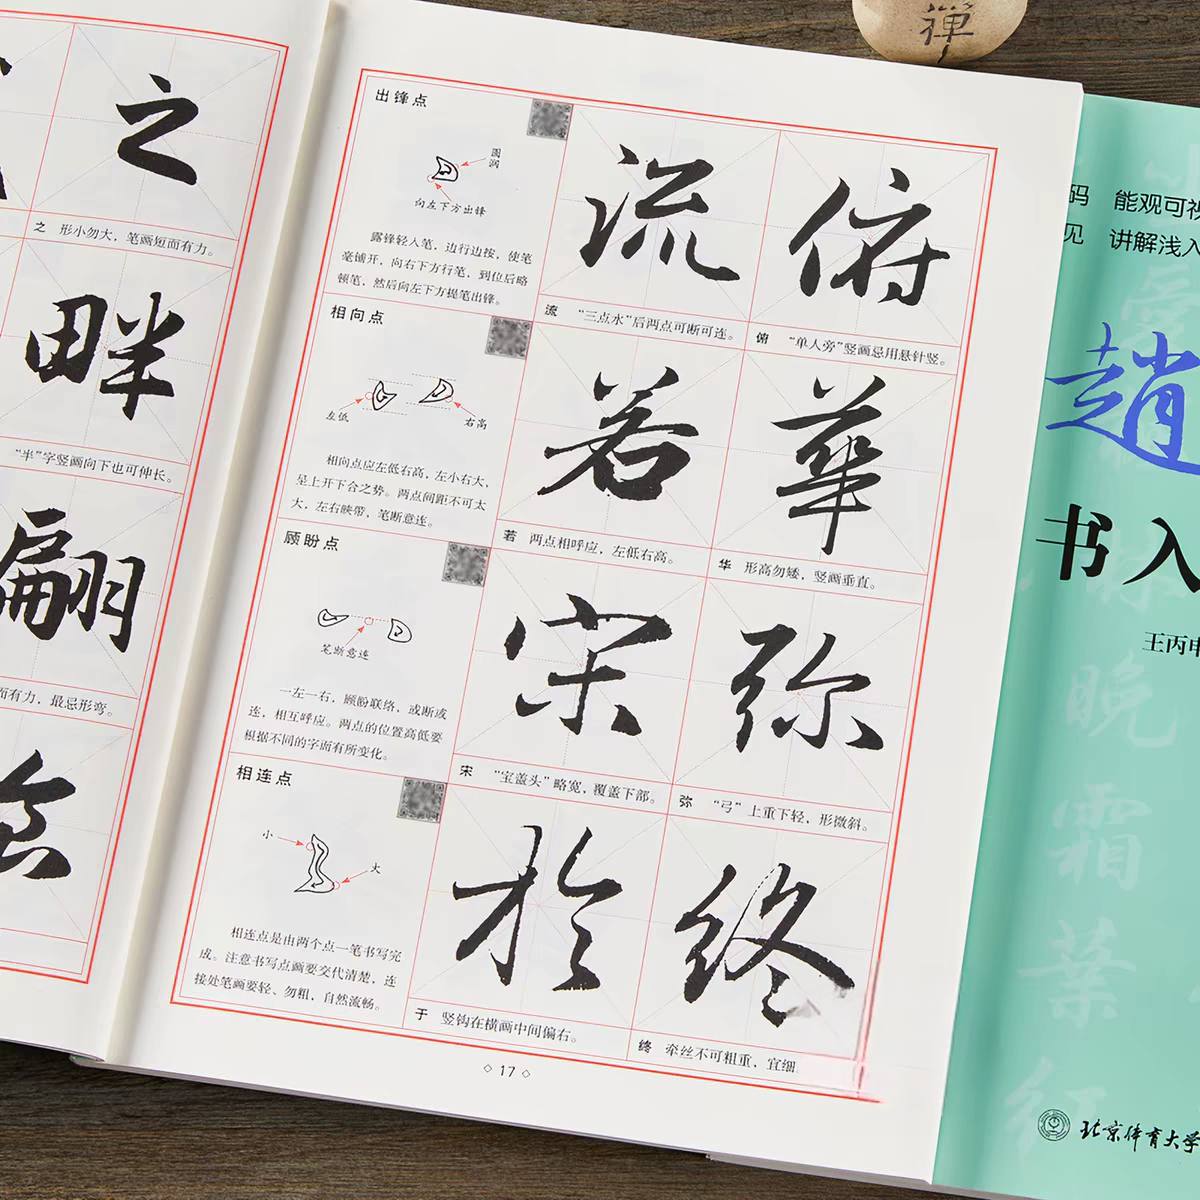 禅
之
之 形小勿大，笔画短而有力。
畔
“半”字竖画向下也可伸长。
翩
而有力，最忌形弯。
出锋点
圆润
向左下方出锋
露锋轻入笔，边行边按，使笔
毫铺开，向右下方行笔，到位后略
顿笔，然后向左下方提笔出锋。
流
流 “三点水”后两点可断可连。
俯
俯 “单人旁”竖画忌用悬针竖。
相向点
左低
右高
相向点应左低右高，左小右大，
呈上开下合之势。两点间距不可太
大，左右映带，笔断意连。
若
若 两点相呼应，左低右高。
華
华 形高勿矮，竖画垂直。
顾盼点
笔断意连
一左一右，顾盼联络，或断或
连，相互呼应。两点的位置高低要
根据不同的字而有所变化。
宋
宋 “宝盖头”略宽，覆盖下部。
弥
弥 “弓”上重下轻，形微斜。
相连点
小
大
相连点是由两个点一笔书写完
成。注意书写点画要交代清楚，连
接处笔画要轻、勿粗，自然流畅。
於
于 竖钩在横画中间偏右。
终
终 牵丝不可粗重，宜细
17
码 能观可视
见 讲解浅入
趙
书入
王丙申
晚
霜
葉
红
北京体育大学